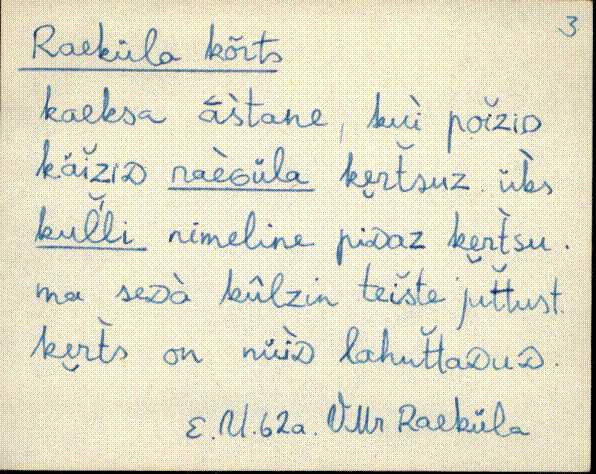 3
Raeküla kõrts
kaeksa āštane, kui poìzid
käìzid raèGüla kẹrt̆suz. ük̀s
kul̆li nimeline pidaz kẹrt̀su.
ma sedà kûlzin teište jut̆tust.
kẹrt̀s on nüìd lahut̆tadud.
E.U.62a. VMr Raeküla